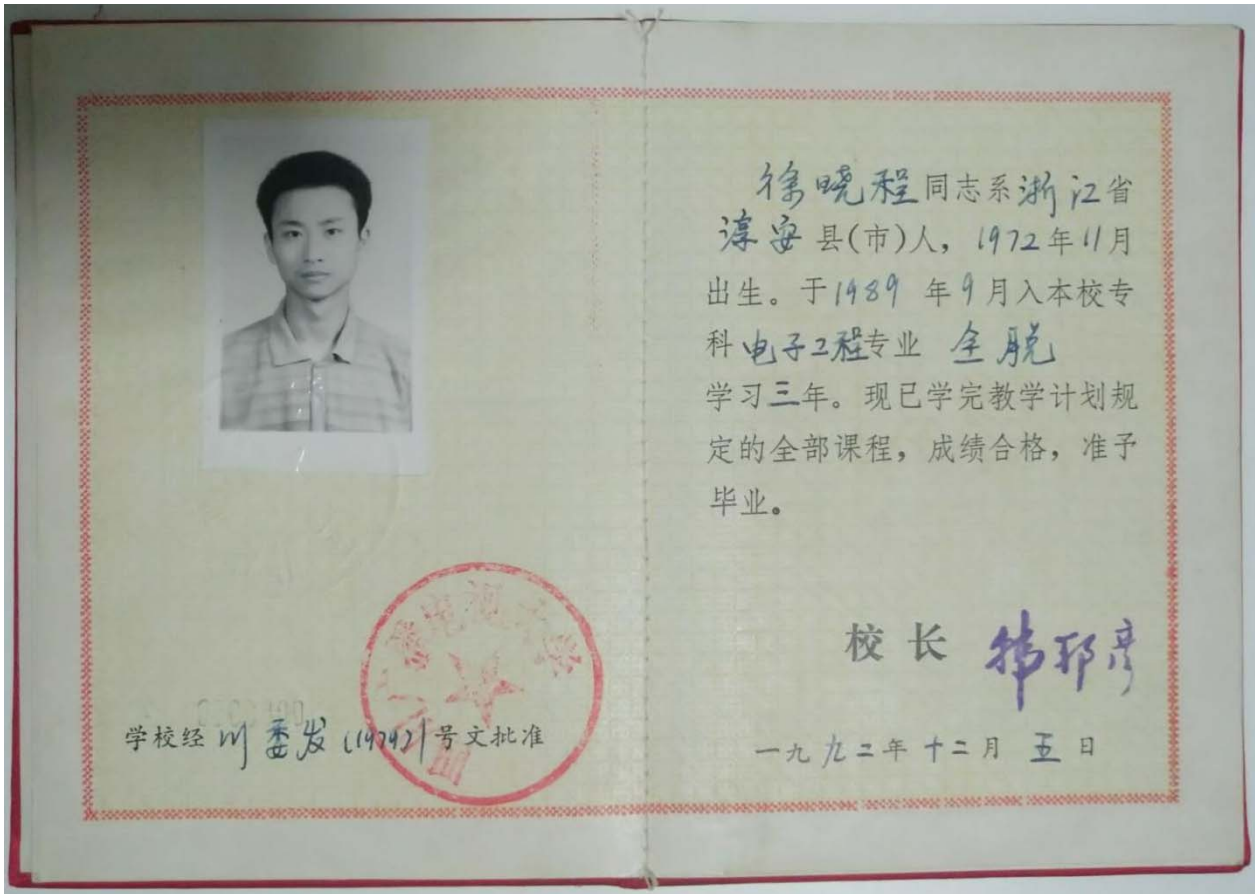 徐晓程同志系浙江省
淳安县(市)人，1972年11月
出生。于1989年9月入本校专
科电子工程专业 全脱
学习三年。现已学完教学计划规
定的全部课程，成绩合格，准予
毕业。
校长 韩邦彦
一九九二年十二月五日
四川广播电视大学
学校经川委发(1979)1号文批准